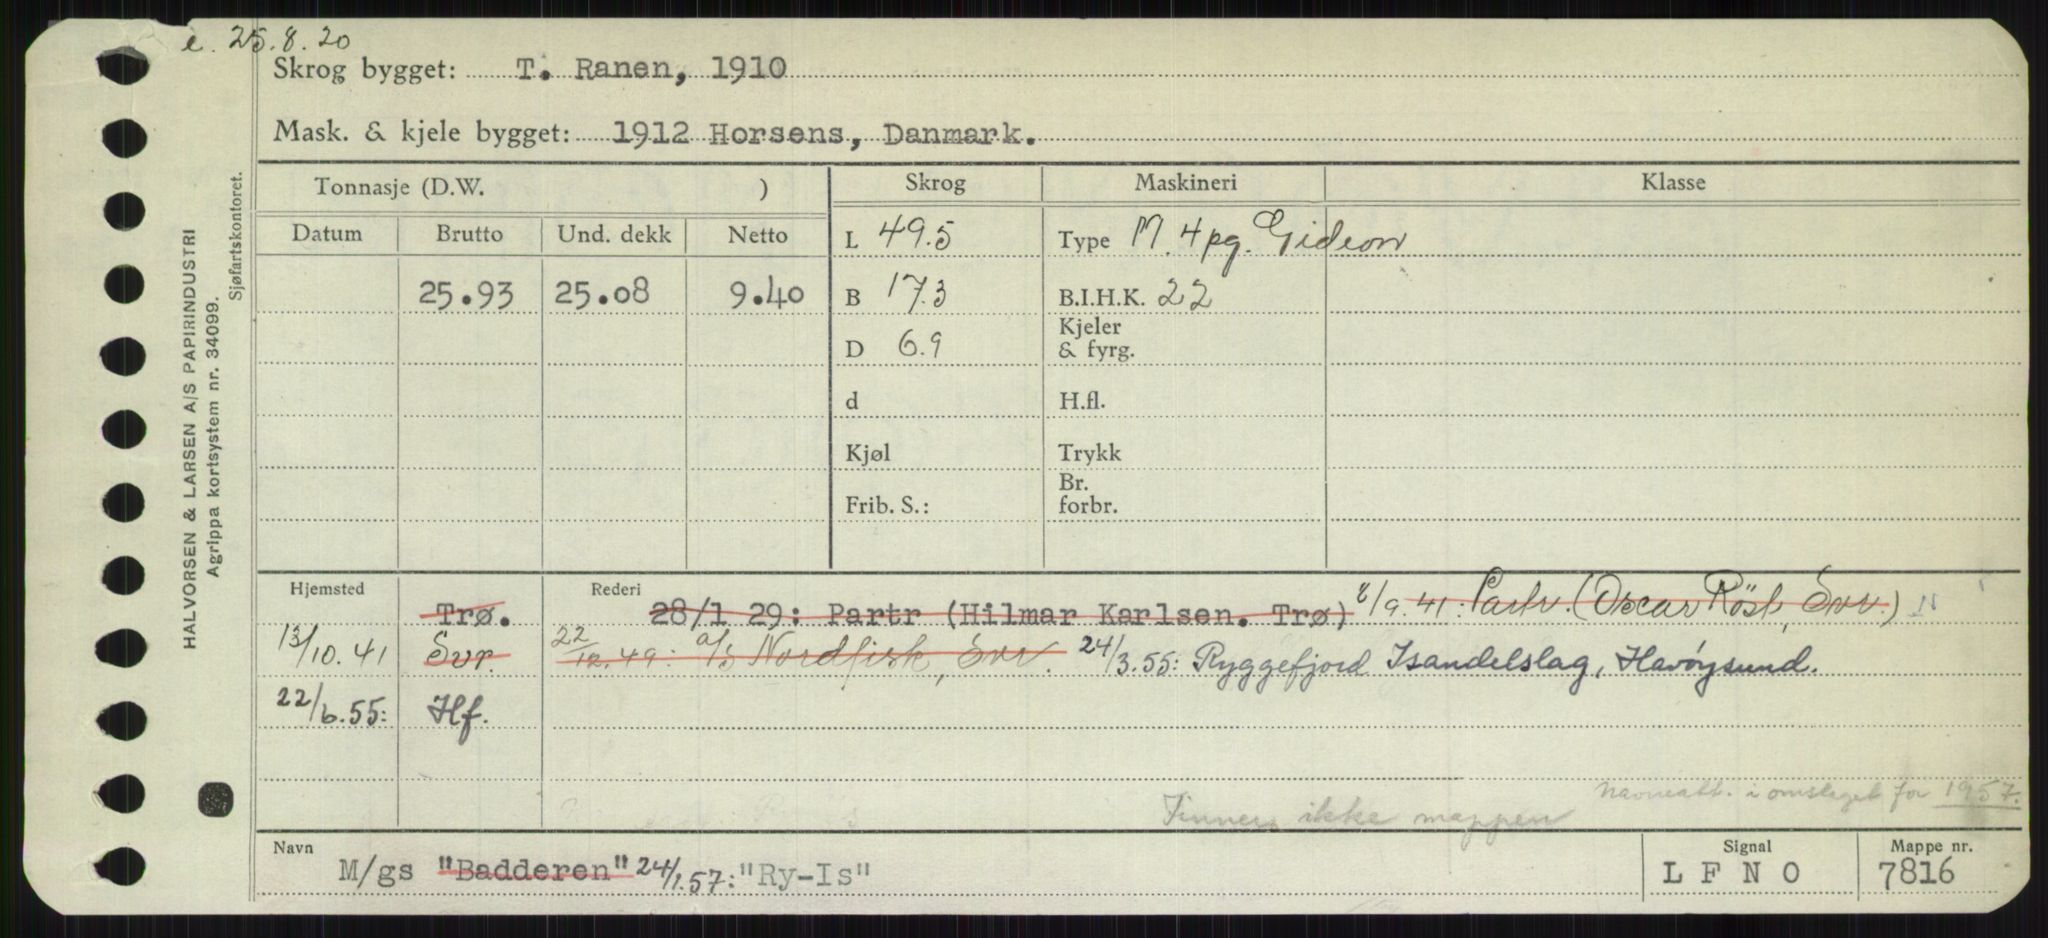 e. 25.8.20
Skrog bygget: T. Ranen, 1910
Mask. & kjele bygget: 1912 Horsens, Danmark.
HALVORSEN & LARSEN A/S PAPIRINDUSTRI
Agrippa kortsystem nr. 34099.
Sjøfartskontoret.
Tonnasje (D.W. ) Skrog Maskineri Klasse
Datum Brutto Und. dekk Netto
L 49.5 Type M. 4pg. Gideon
25.93 25.08 9.40 B 17.3 B.I.H.K. 22
D 6.9 Kjeler & fyrg.
d H.fl.
Kjøl Trykk
Frib. S.: Br. forbr.
Hjemsted Rederi
Trø. 28/1 29: Partr (Hilmar Karlsen. Trø) 8/9.41: Partr (Oscar Röst, Svv.)
13/10.41 Svr. 22/12.49: a/s Nordfisk, Svv. 24/3.55: Ryggefjord Isandelslag, Havöysund.
22/6.55: Hf.
Navneatt. i omslaget for 1957.
Finner ikke mappen
Navn Signal Mappe nr.
M/gs "Badderen" 24/1.57: "Ry-Is" L F N O 7816